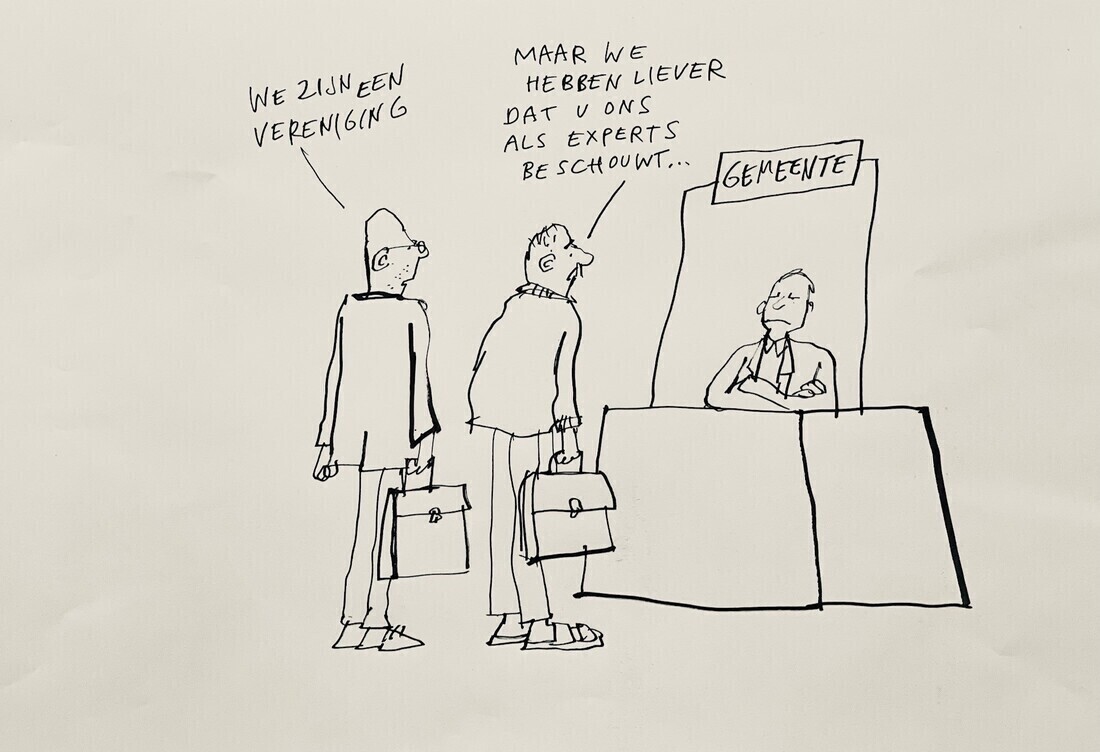 WE ZIJN EEN
VERENIGING
MAAR WE
HEBBEN LIEVER
DAT U ONS
ALS EXPERTS
BESCHOUWT...
GEMEENTE